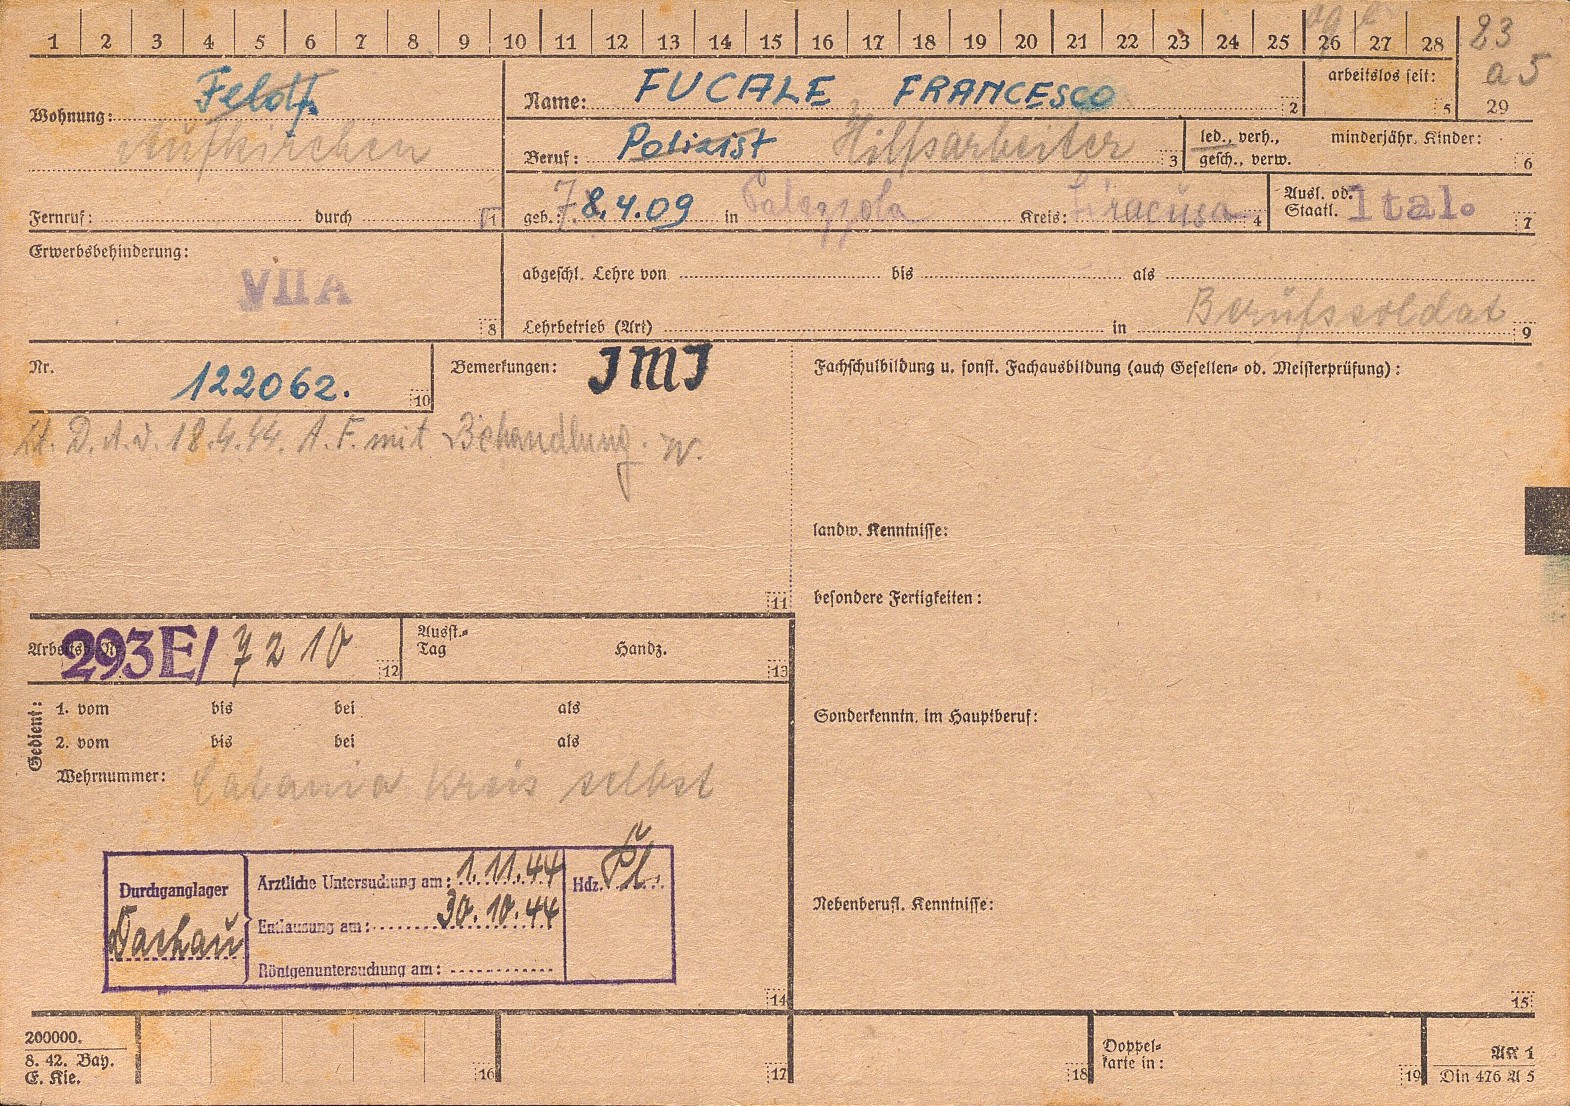 1 2 3 4 5 6 7 8 9 10 11 12 13 14 15 16 17 18 19 20 21 22 23 24 25 26 27 28 23
a5
29
Wohnung: Feldf.
Aufkirchen
Name: FUCALE FRANCESCO 2
arbeitslos seit: 5
Beruf: Polizist Hilfsarbeiter 3
led., verh.,
gesch., verw.
minderjähr. Kinder: 6
Fernruf: durch 1
geb.: 7. 8.4.09 in Palazzola Kreis: Siracusa 4
Ausl. od.
Staatl. Ital. 7
Erwerbsbehinderung:
VIIA 8
abgeschl. Lehre von bis als
Berufssoldat
Lehrbetrieb (Art) in 9
Nr. 122062. 10
Bemerkungen: IMI
Lt. D.A.v. 18.4.44. A.F. mit Behandlung. W.
11
Fachschulbildung u. sonst. Fachausbildung (auch Gesellen- od. Meisterprüfung):
landw. Kenntnisse:
besondere Fertigkeiten:
Sonderkenntn. im Hauptberuf:
Nebenberufl. Kenntnisse:
15
293E/ 7210 12
Ausst.-
Tag
Handz. 13
Gedient:
1. vom bis bei als
2. vom bis bei als
Wehrnummer:
Catania Kreis selbst
Durchganglager
Dachau
Ärztliche Untersuchung am: 1.11.44
Entlausung am: 30.10.44
Röntgenuntersuchung am:
Hdz. Pl.
14
200000.
8. 42. Bay.
E. Kie.
16
17
18
Doppel-
karte in:
19
AK 1
Din 476 A 5